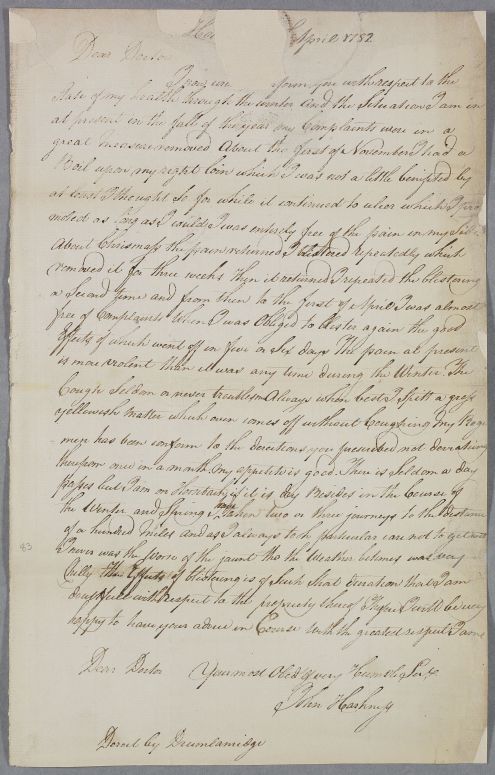 April 1782
Dear Doctor
upon you with respect to the
State of my health through the winter and the Situation I am in
at present in the fall of the year my Complaints were in a
great measure removed About the first of November I had a
Boil upon my right loin which I was not a little benifited by
at least I thought So for while it continued to ulcer which I pro
moted as long as I could I was entirely free of the pain in my Side
About Chrismass the pain returned I blistered repeatedly which
removed it for three weeks then it returned I repeated the blistering
a Second time and from then to the first of April I was almost
free of Complaints When I was Obliged to blister again the good
Effects of which went off in five or Six days The pain at present
is more violent than it was any time during the Winter The
Cough Seldom or never troublesom Always when best I Spitt a gross
yellowish matter which even comes off without Coughing My Regi
men has been conform to the directions you prescribed not deviating
therefrom once in a month my appetite is good There is Seldom a day
passes but I am on Horsback if it is dry Besides in the Course of
the Winter and Spring I have taken two or three journeys to the distance
of a hundred miles and as I always took particular care not to get wet
I never was the worse of the jaunt tho the Weather betimes was very
Cully The Effects of blistering is of Such Short duration that I am
doubtfull with respect to the propriety thereof I will be very
happy to have your advice in Course with the greatest respect I am
Dear Doctor Your most Obed & very Humble Ser
John
Direct by Drumlanrig
83